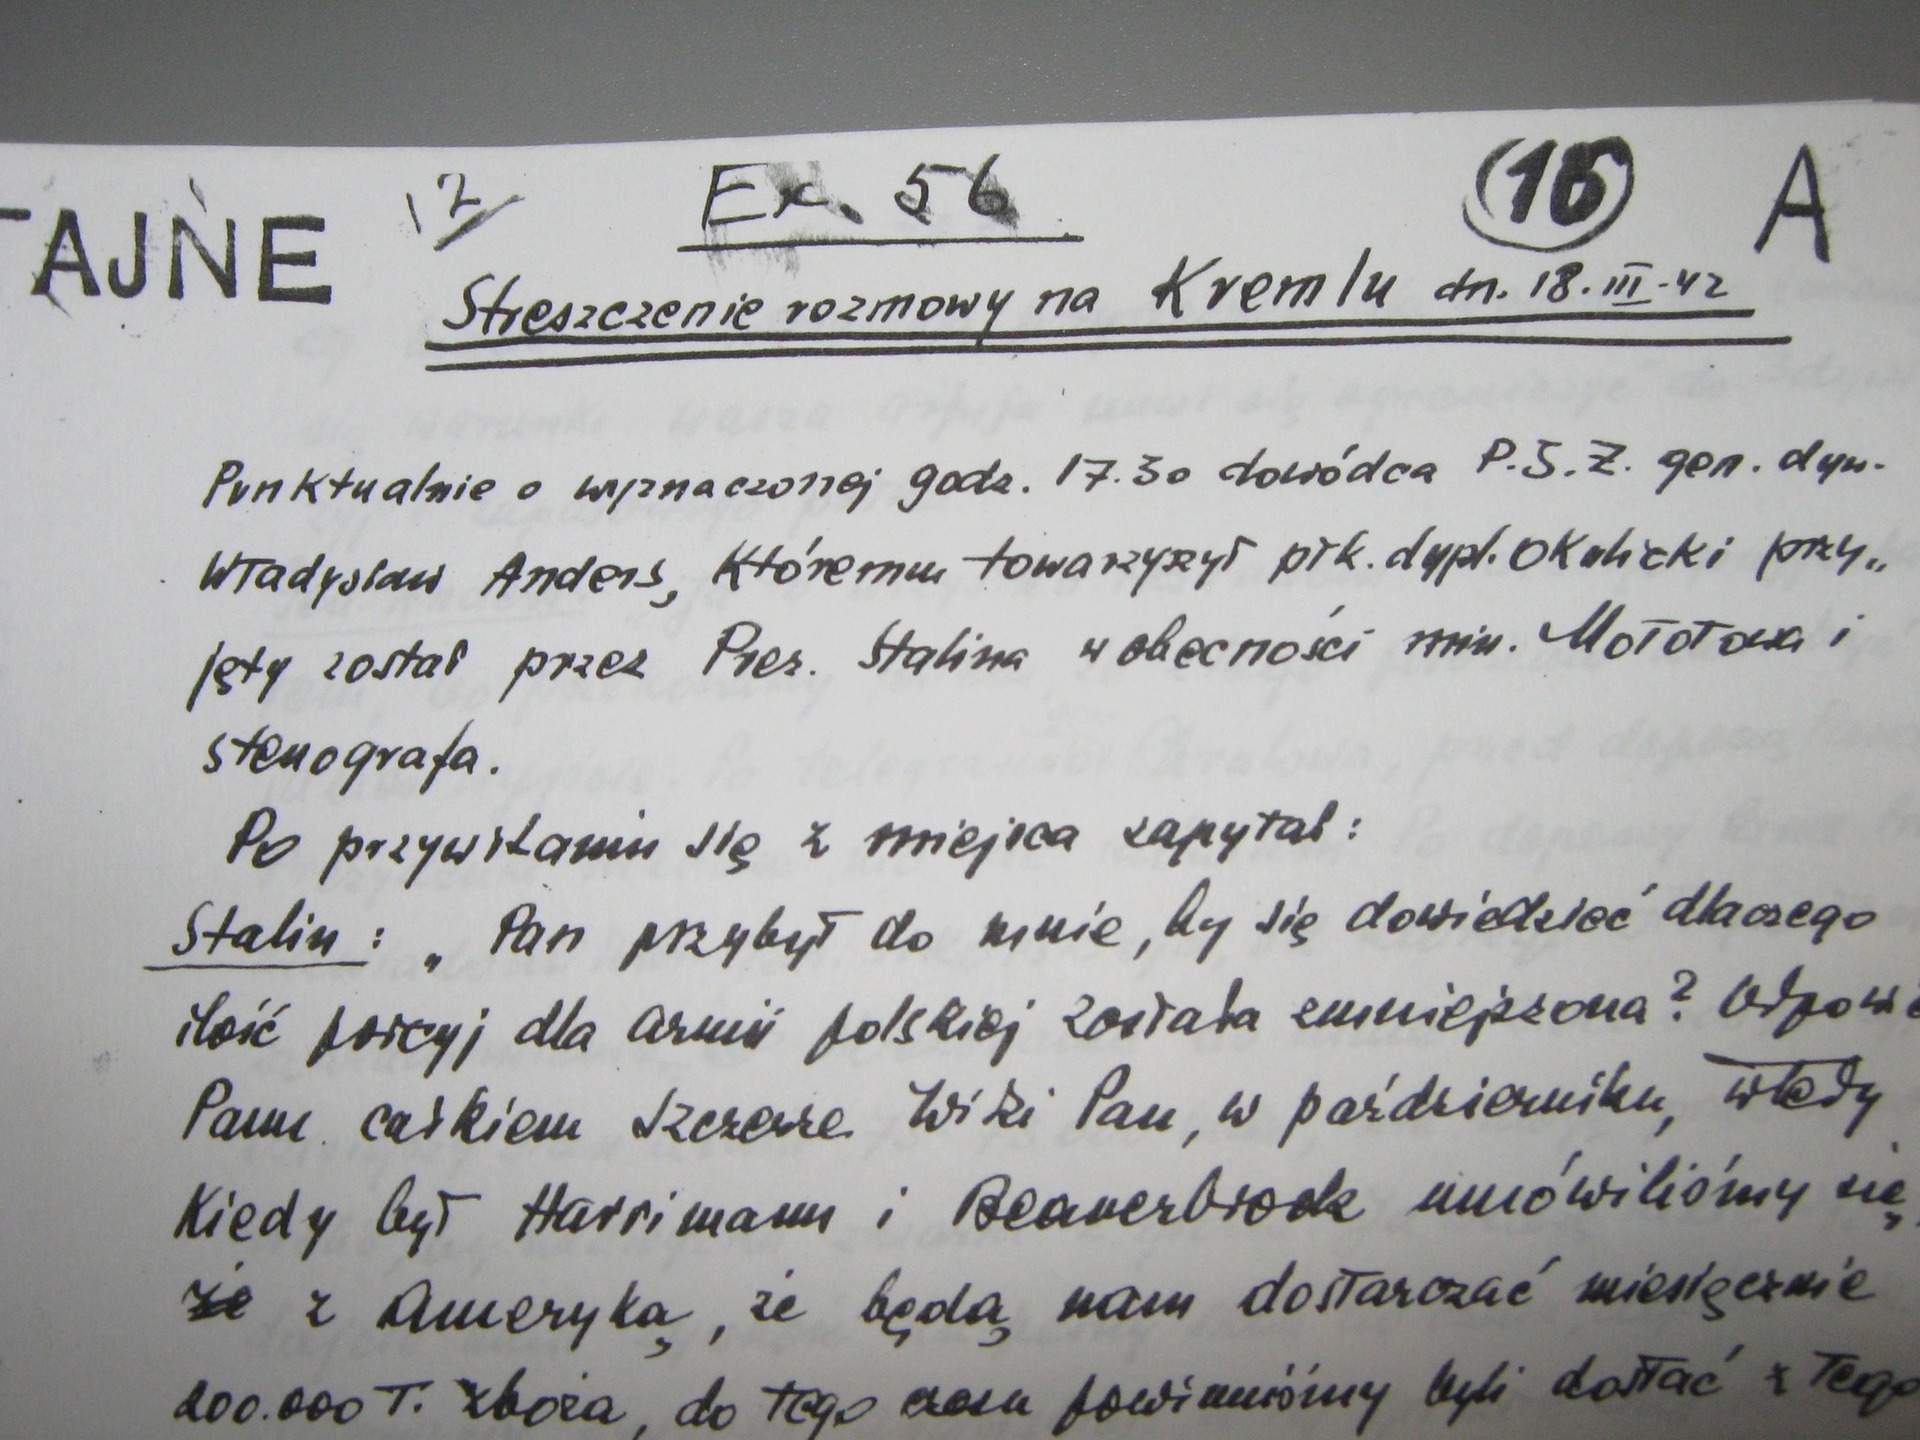 TAJNE 12 Ex. 56 (16) A
Streszczenie rozmowy na Kremlu dn. 18.III.42
Punktualnie o wyznaczonej godz. 17.30 dowódca P.S.Z. gen. dyw.
Władysław Anders, któremu towarzyszył płk. dypl. Okulicki przy„
jęty został przez Prez. Stalina w obecności min. Mołotowa i
stenografa.
Po przywitaniu się z miejsca zapytał:
Stalin: „Pan przybył do mnie, by się dowiedzieć dlaczego
ilość porcyj dla armii polskiej została zmniejszona? Odpowie
Panu całkiem szczerze. Widzi Pan, w październiku, wtedy
kiedy był Harrimann i Beaverbrock umówiliśmy się,
że z Ameryką, że będą nam dostarczać miesięcznie
200.000 T. zboża, do tego czasu powinniśmy byli dostać z tego